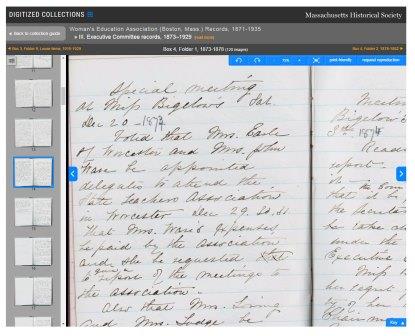 DIGITIZED COLLECTIONS
Massachusetts Historical Society
Back to collection guide
Woman's Education Association (Boston, Mass.) Records, 1871-1935
III. Executive Committee records, 1873-1929 (read more)
Box 3, Folder 9, Loose items, 1916-1929
Box 4, Folder 1, 1873-1878 (120 images)
Box 4, Folder 2, 1878-1882
print-friendly
request reproduction
Special meeting
at Miss Bigelows Sat.
Dec 20 - 1873
Voted that Mrs. Earle
of Worcester and Mrs. John
Ware be appointed
delegates to attend the
State Teachers Association
in Worcester Dec 29. 30. 31
That Mrs. Ware's expenses
be paid by the Association
and she be requested
to give a report of the meetings to
the association.
Also that Mrs.
and Mrs. Lodge be
Meeting
Bigelow
8th 1874
Read
report
is
that it be
the
be
under the
Executive
Miss
her
by of her
Chairman
12
13
14
15
16
Key